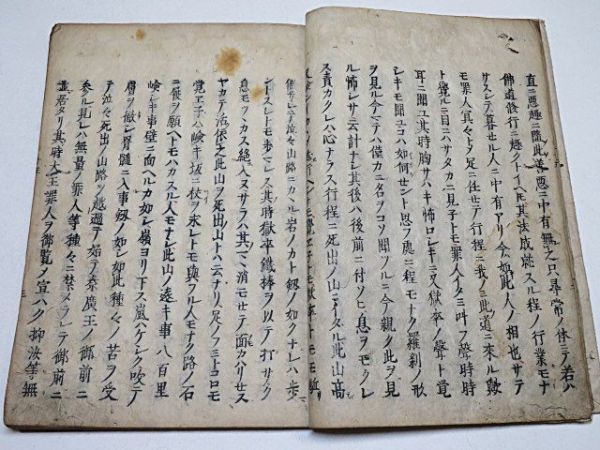 直ニ悪趣ニ墮此善悪ニ中有無之只尋常ノ休ニテ若ハ
佛道修行ニ趣クトイヘモ其法成就スル程ノ行業モナ
サスシテ暮セル人ニ中有アリ今如此人ノ相也サテ
モ罪人冥々トメ足ニ任セテ行程ニ我ヨモ此道ニ来ル歟
ト響ルニ目ニハサタカニ見子トモ罪人イタミ叫フ聲時時
耳ニ聞ユ其時胸サハキ怖ロシキニ又獄卒ノ聲ト覚
シキモ聞ユコハ如何セント思フ處ニ程モナク羅刹ノ形
ヲ見ル今マテハ僅カニ名ヲコソ聞ツルニ今親ク此ヲ見
ル怖レサ云計ナシ其後ハ後前ニ付ソヒ息ヲモクレ
ス責カクレハ心ナラス行程ニ死出ノ山ニイタル此山高
催サレテ泣々山路ニカヽル岩ノカト釼ノ如クナレハ歩
ントスレトモ歩マレス其時獄卒鐵棒ヲ以テ打サク
息モツカス絶入ヌサラハ其マヽニ消モセテ面カハリセス
ヤカテ活ル依之此山ヲ死出山トハ云ナリ足ノフミトコロモ
覚エ子ハ嶮キ坂ニ杖ヲ求レトモ與フル人モナク路ノ石
ニ履ヲ願ヘトモハカスル人モナシ此山ノ遠キ事八百里
嶮シキ事壁ニ面ヘルカ如シ嶺ヨリ下ス嵐ハケシク吹テ
膚ヲ徹シ骨髓ニ入事釼ノ如シ如此種々ノ苦ヲ受
テ泣々死出ノ山路ヲ越過テ始テ秦廣王ノ御前ニ
参ル見レハ無量ノ罪人等種々ニ禁メラレテ御前ニ
並居タリ其時大王罪人ヲ御覧メ宣ハク抑汝等無